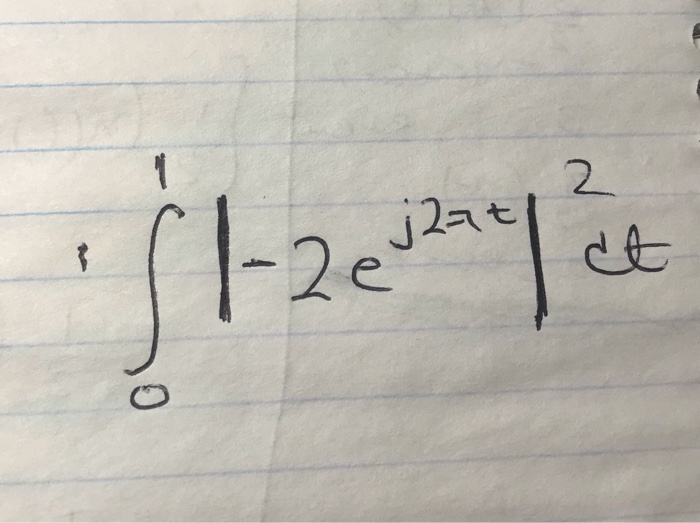 ∫₀¹ |-2e^{j2πt}|² dt